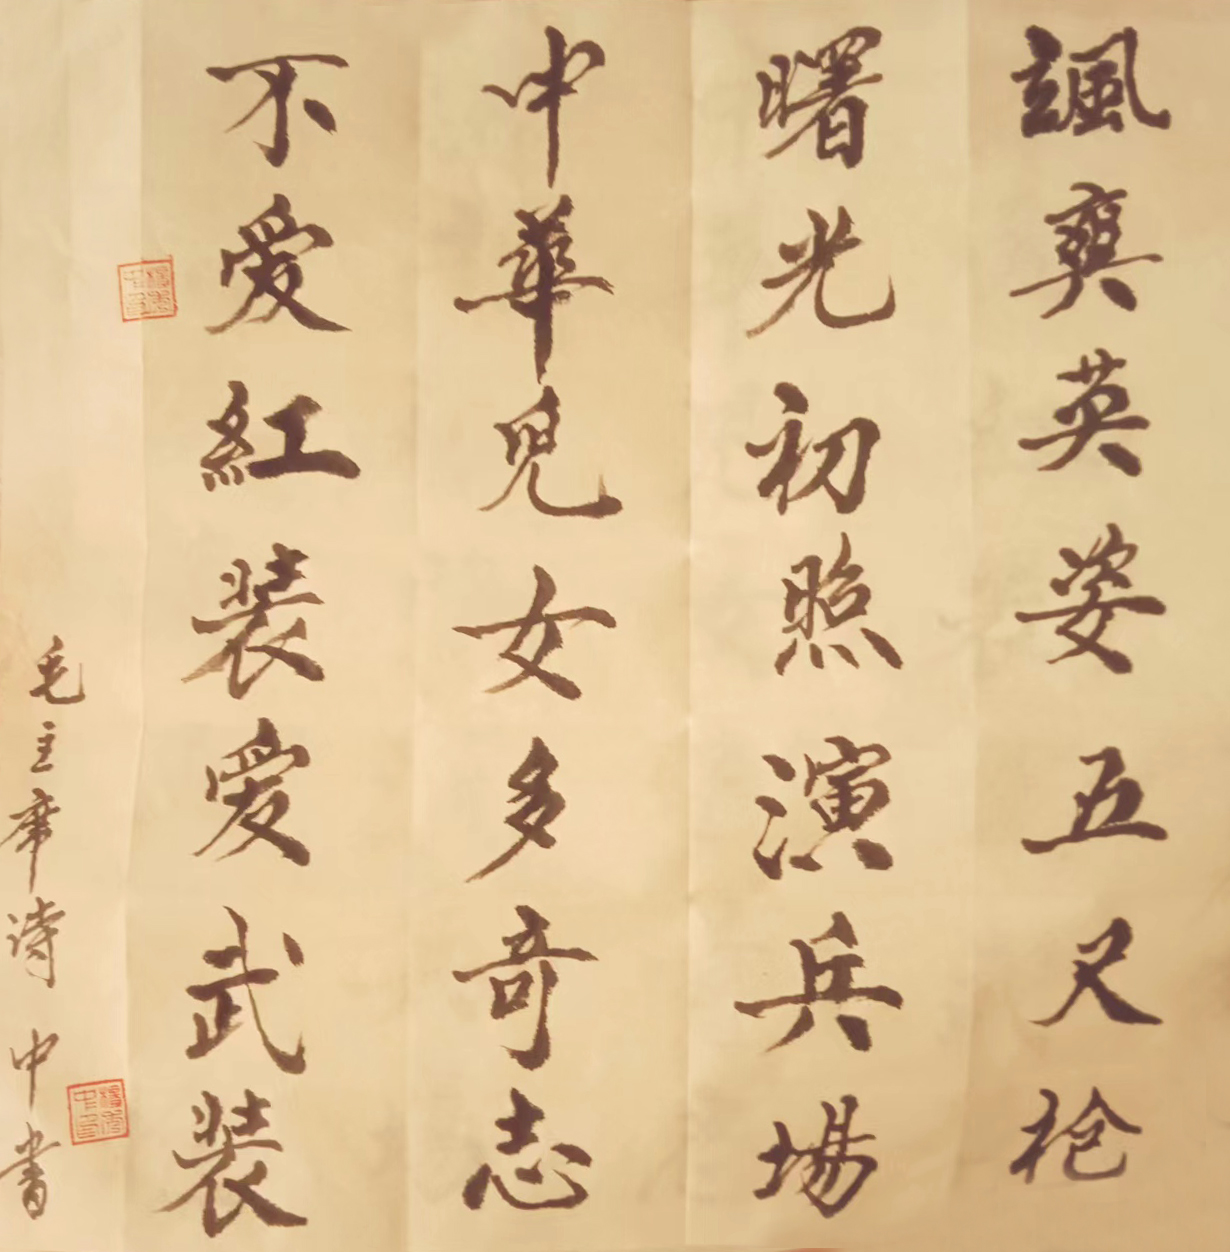 颯爽英姿五尺枪
曙光初照演兵場
中華兒女多奇志
不爱紅装爱武装
毛主席诗 中书